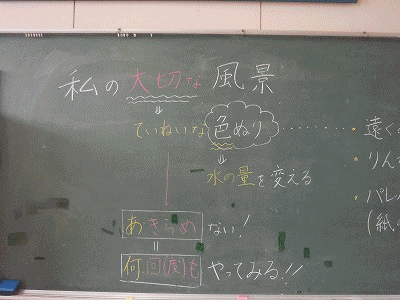 私の大切な風景
⇓
ていねいな色ぬり ・・・・・・・・
⇓
水の量を変える
あきらめない!
=
何回(度)もやってみる!!
・遠く
・りん
・パレッ
(紙